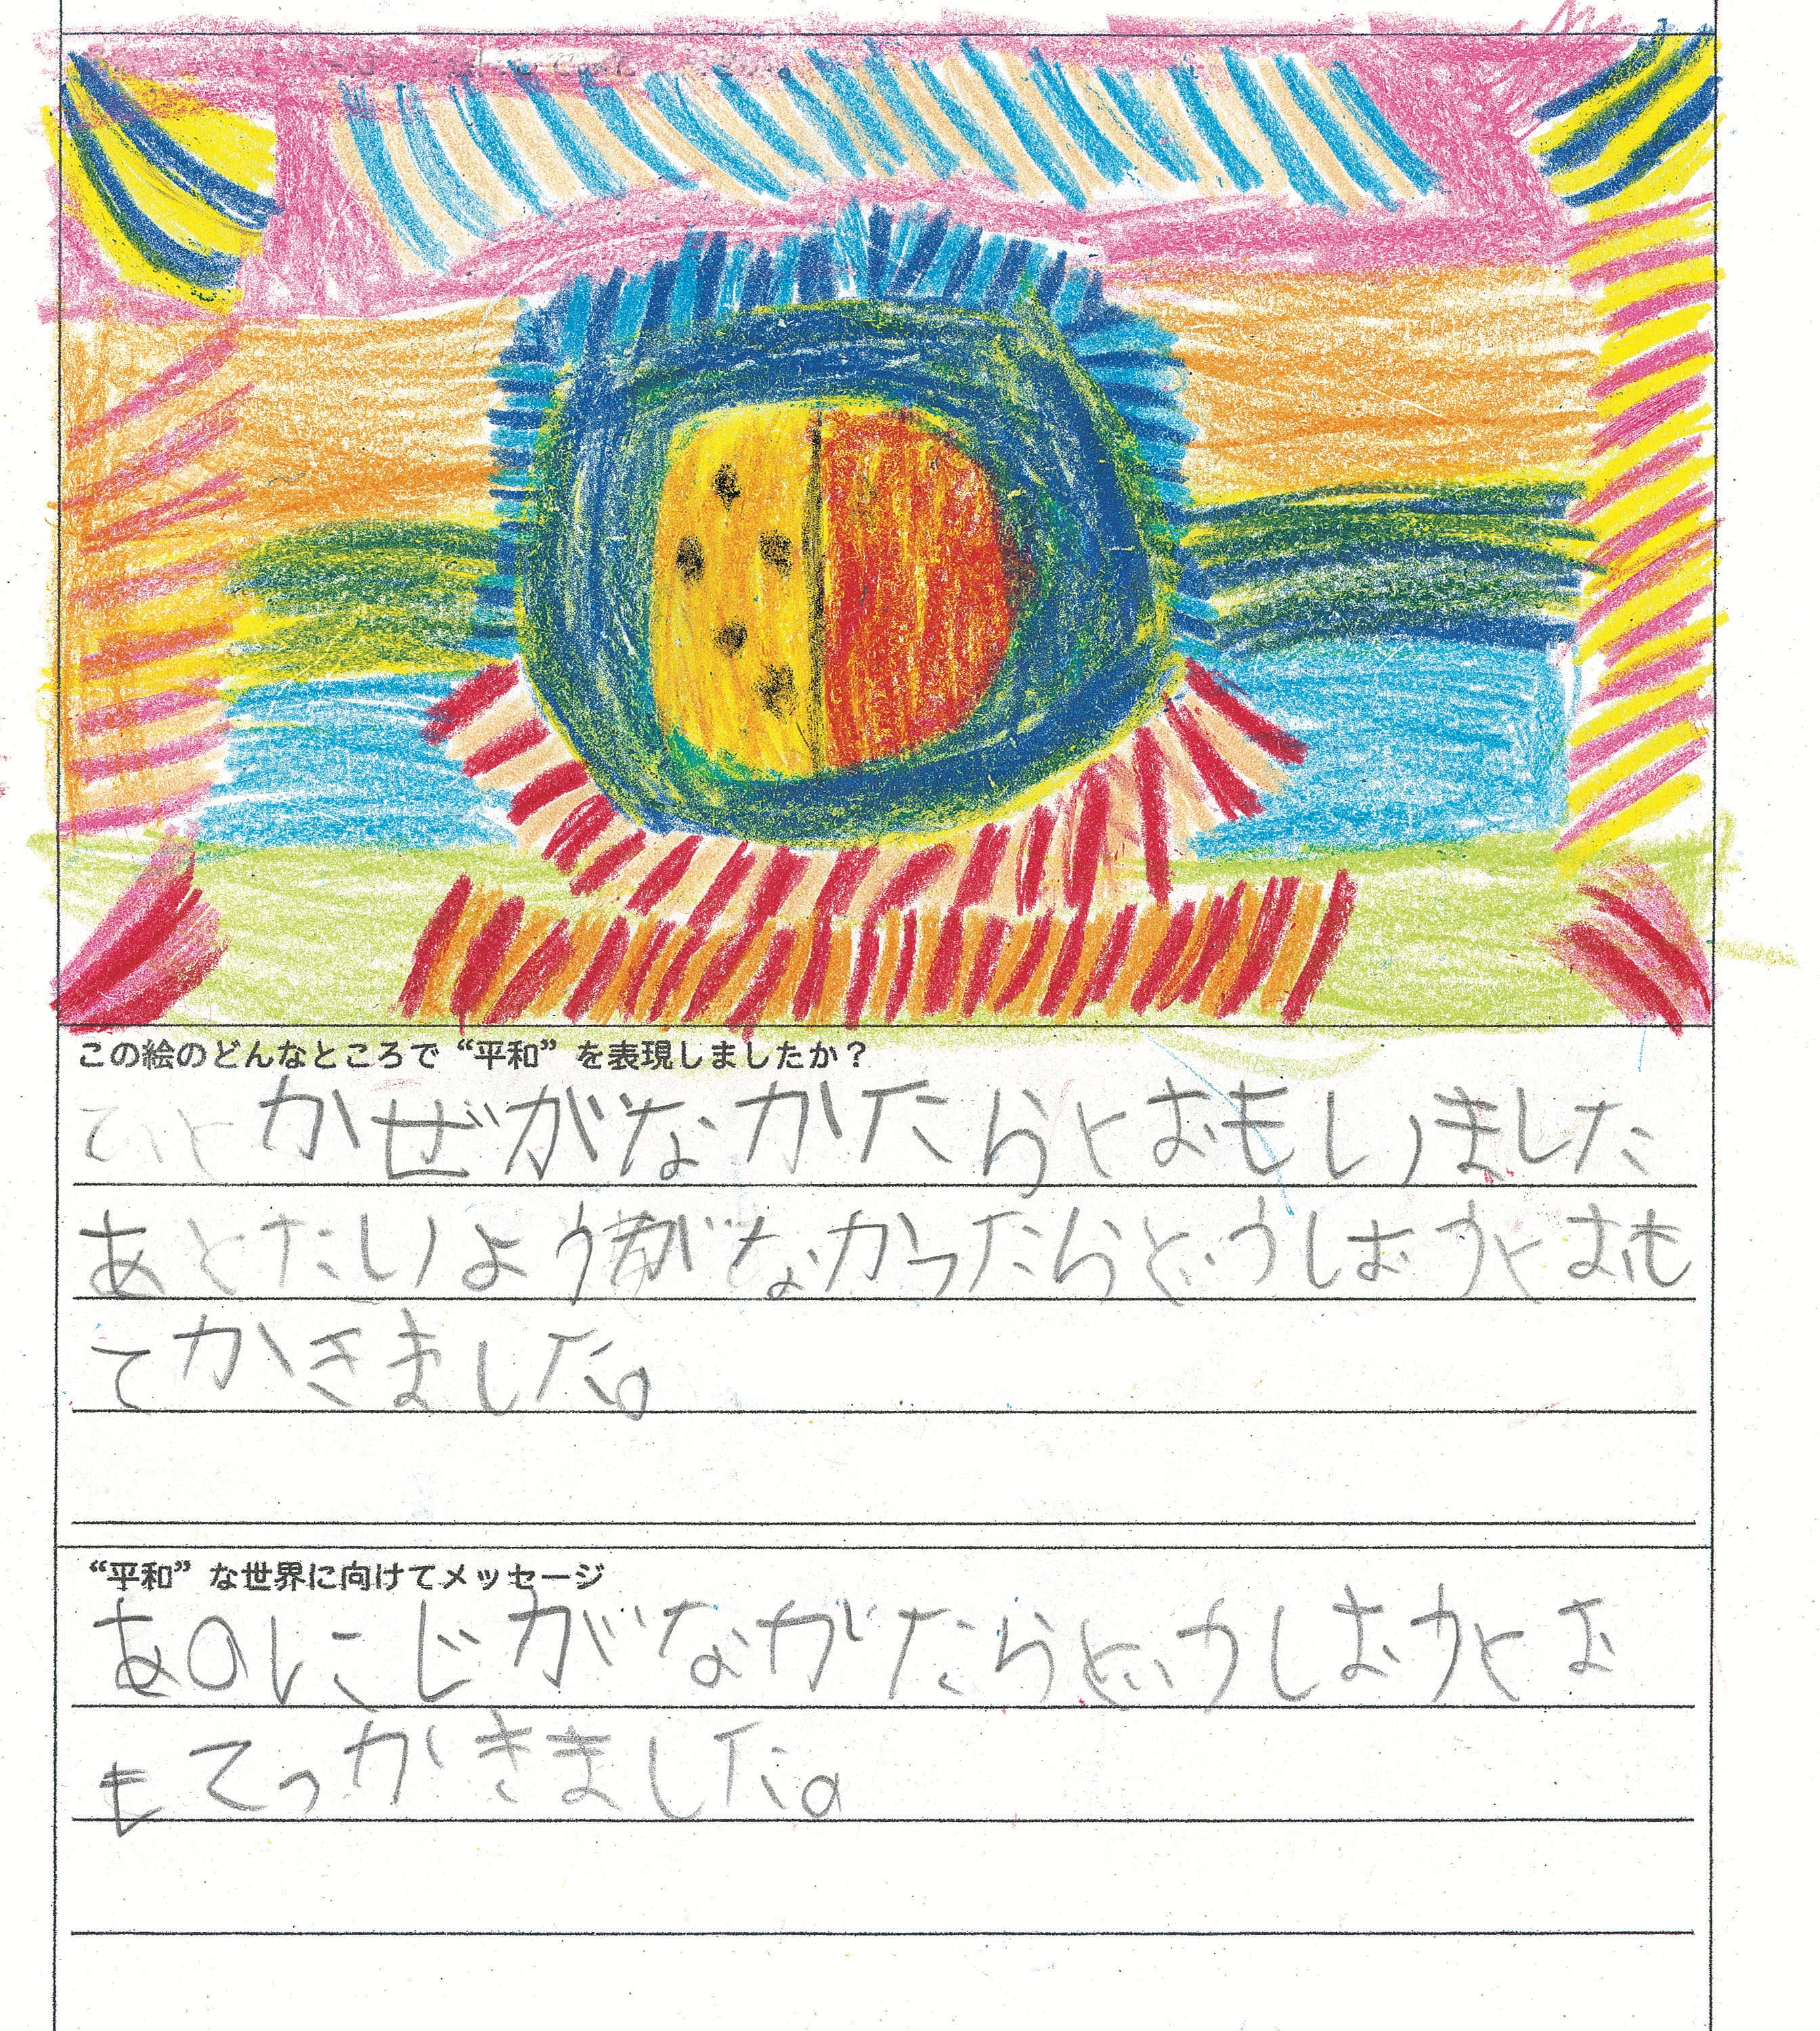 この絵のどんなところで“平和”を表現しましたか？
かぜがなかたらとおもしいました
あとたいようがなかったらどうしおうとおも
てかきました。
“平和”な世界に向けてメッセージ
あのにじがながたらどうしおうとお
もてっかきました。